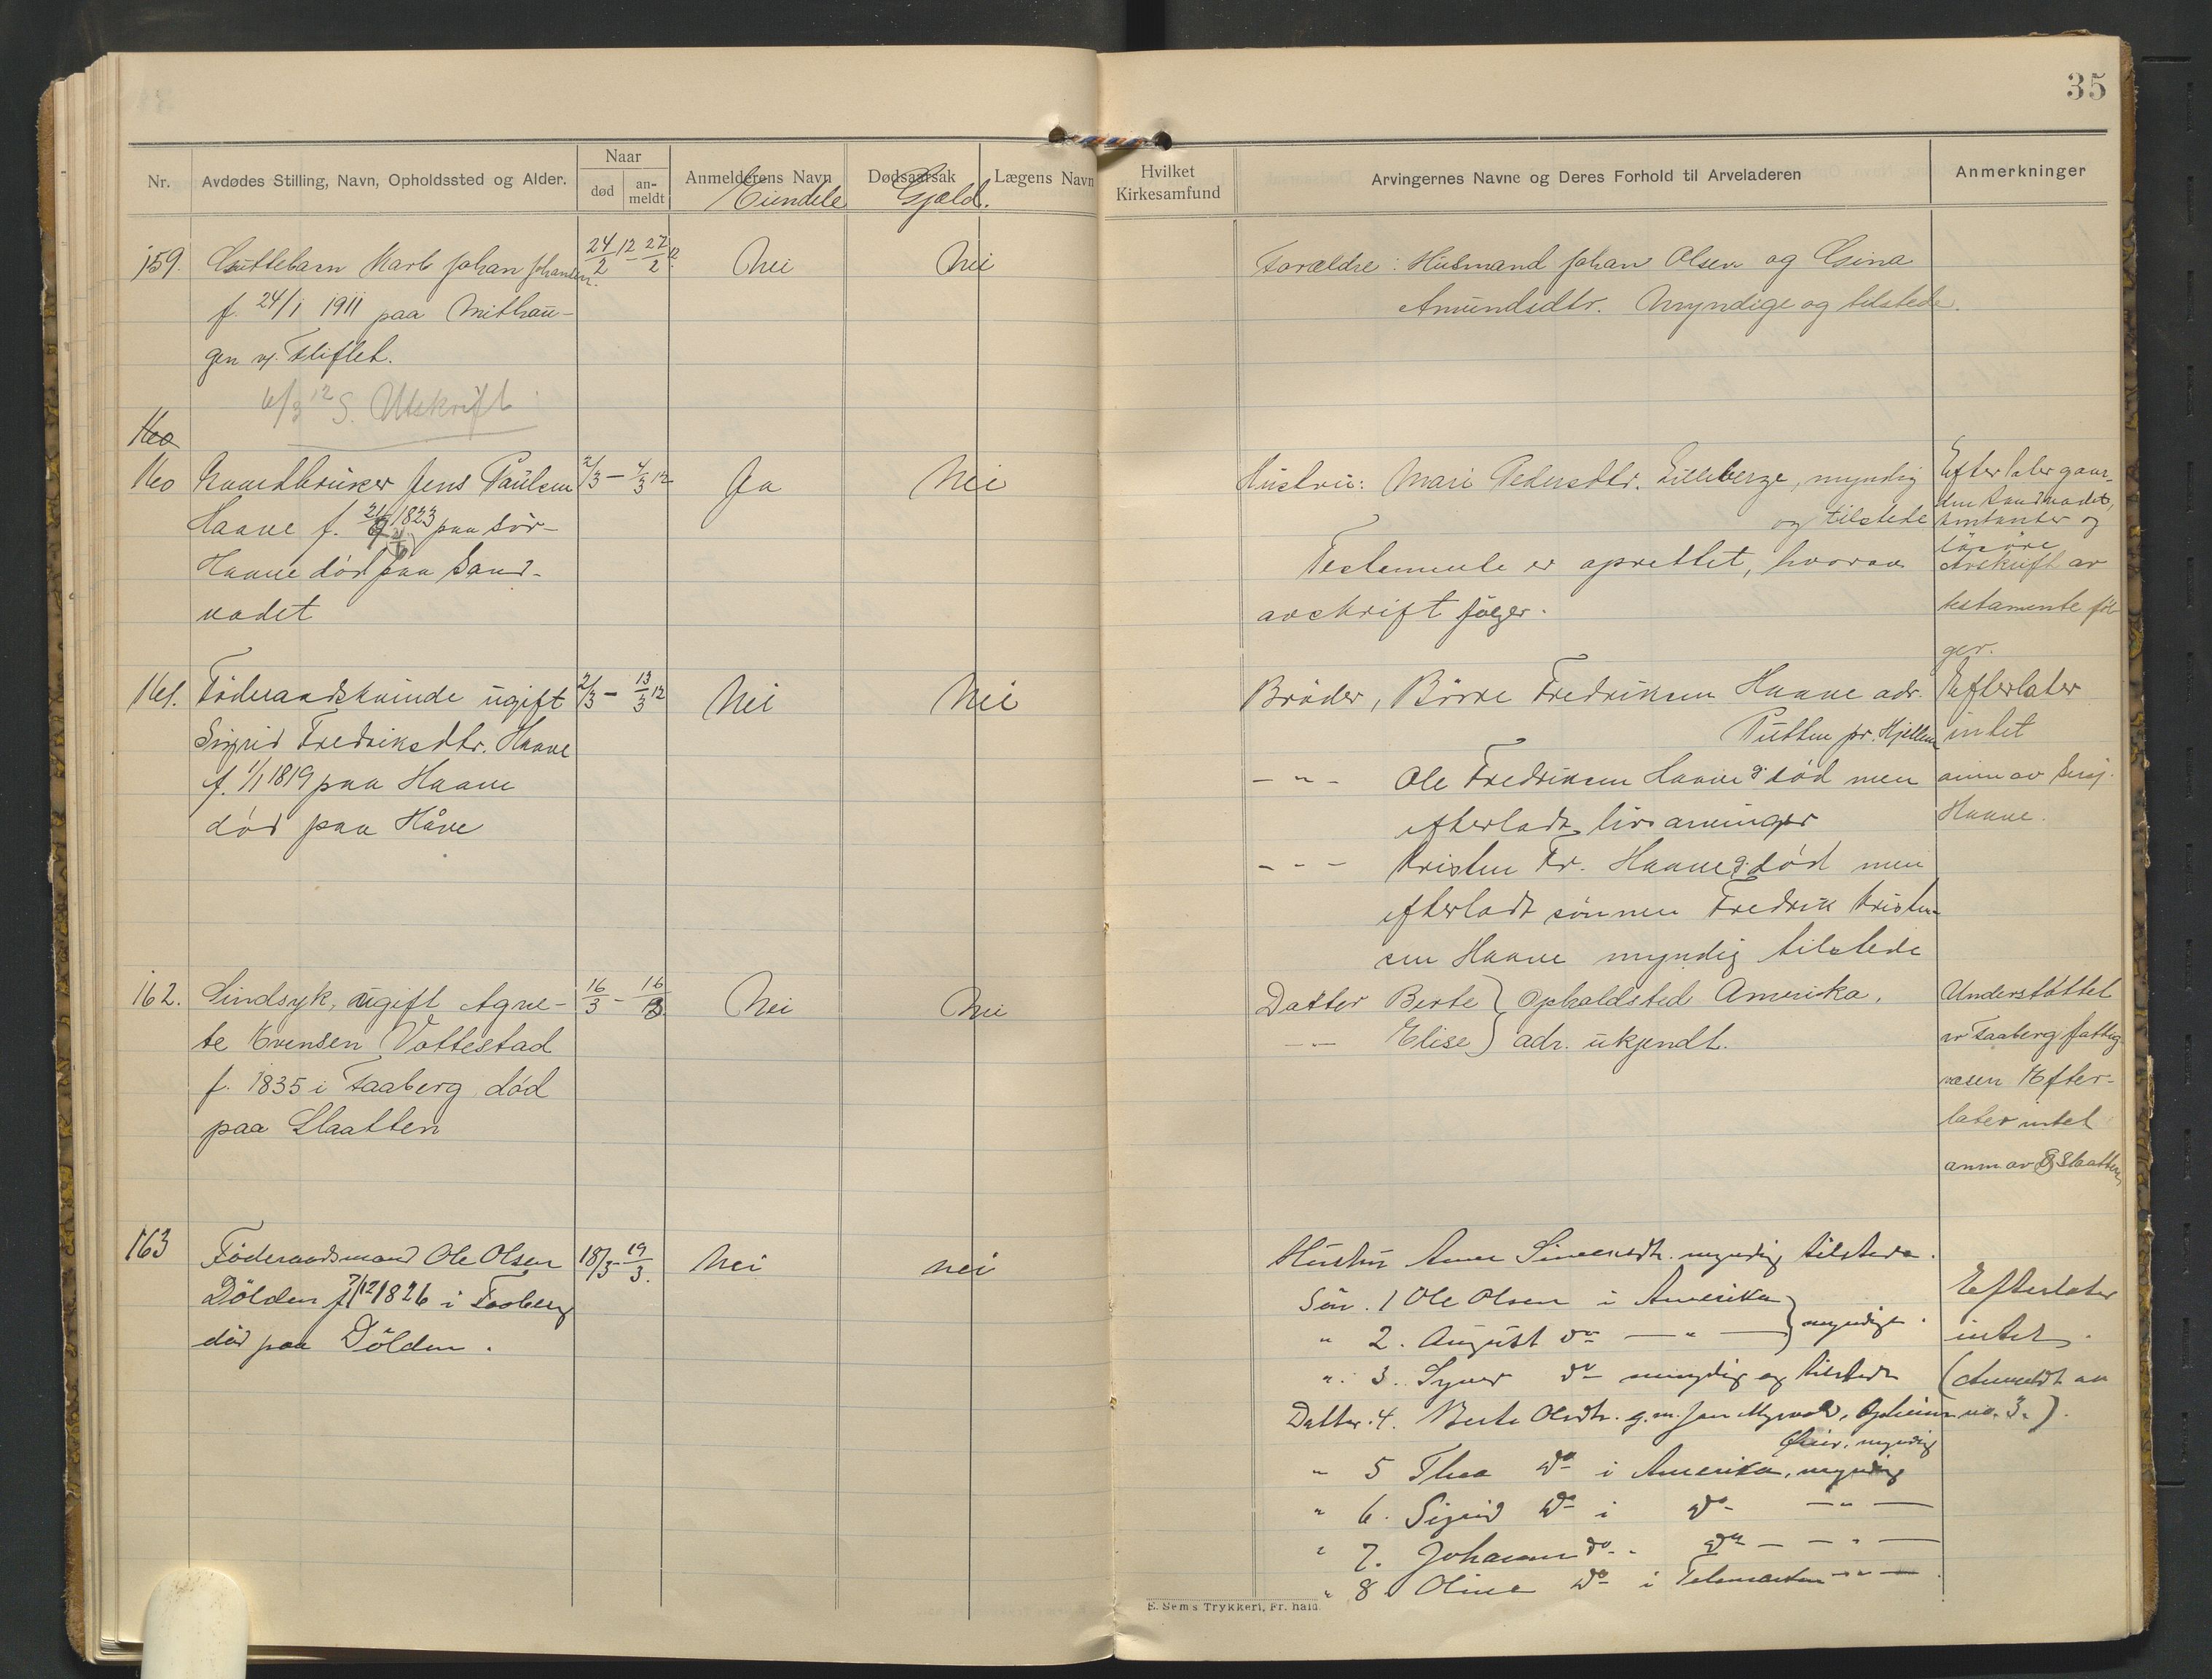 35
Nr.
Avdødes Stilling, Navn, Opholdssted og Alder.
Naar
død
an-
meldt
Anmelderens Navn
Eiendele
Dødsaarsak
Gjæld.
Lægens Navn
Hvilket
Kirkesamfund
Arvingernes Navne og Deres Forhold til Arveladeren
Anmerkninger
159. Guttebarn Karl Johan Johansen 24/2 12 - 27/2 12. Nei Nei
f. 24/1 1911 paa
gen u. Fliflet.
6/3 12 S. Utskrift
Forældre: Husmand Johan Olsen og Gina
Amundsdtr. Myndige og tilstede.
160
160 Gaardbruker Jens Paulsen 2/3 - 4/3 12 Ja Nei
Haave f. 1823 paa Sör-
Haave död paa Sand-
vadet
Hustru: Mari Pedersdtr. Lilleberge, myndig
og tilstede
Testamente er oprettet, hvorav
avskrift følger.
Efterlater gaar-
den Sandvadet,
kontanter og
lösöre
Avskrift av
testamente föl-
ger.
161. Föderaadskvinde ugift 2/3 - 13/3 12 Nei Nei
Sigrid Fredriksdtr. Haave
f. 1/1 1819 paa Haave
död paa Håve
Bröder, Börre Fredriksen Haave adr.
Putten pr. Hjellum
- " - Ole Fredriksen Haave død men
efterladt livsarvinger
- - - Kristen Fr. Haave död men
efterladt sönnen Fredrik Kristen-
sen Haave myndig tilstede
Efterlater
intet
anm av
Haave.
162. Sindsyk, ugift Agne- 16/3 - 16/3 Nei Nei
te Evensen Vottestad
f. 1835 i Faaberg död
paa Slaatten
Datter Berte } Opholdsted Amerika,
- " - Elise } adr. ukjendt.
Understöttet
av Faaberg fattig
væsen Efter-
later intet
anm av Slaatten
163 Föderaadsmand Ole Olsen 18/3 - 19/3. Nei nei
Dölden f 7/12 1826 i Faaberg
död paa Dölden.
Hustru Anne Simensdtr. myndig tilstede.
Sön. 1 Ole Olsen i Amerika } myndige.
" 2. August do - " -
". 3. Syver do myndig og tilstede
Datter. 4. Berte Olsdtr. g.m. Jon Myrvold,
Öier, myndig
" 5 Thea do i Amerika, myndig
" 6. Sigrid do i do - " -
" 7. Johanne do do - " -
" 8 Oline do i Telemarken - " -
Efterlater
intet.
(Anmeldt av
no. 3.).
E. Sems Trykkeri, Fr.hald